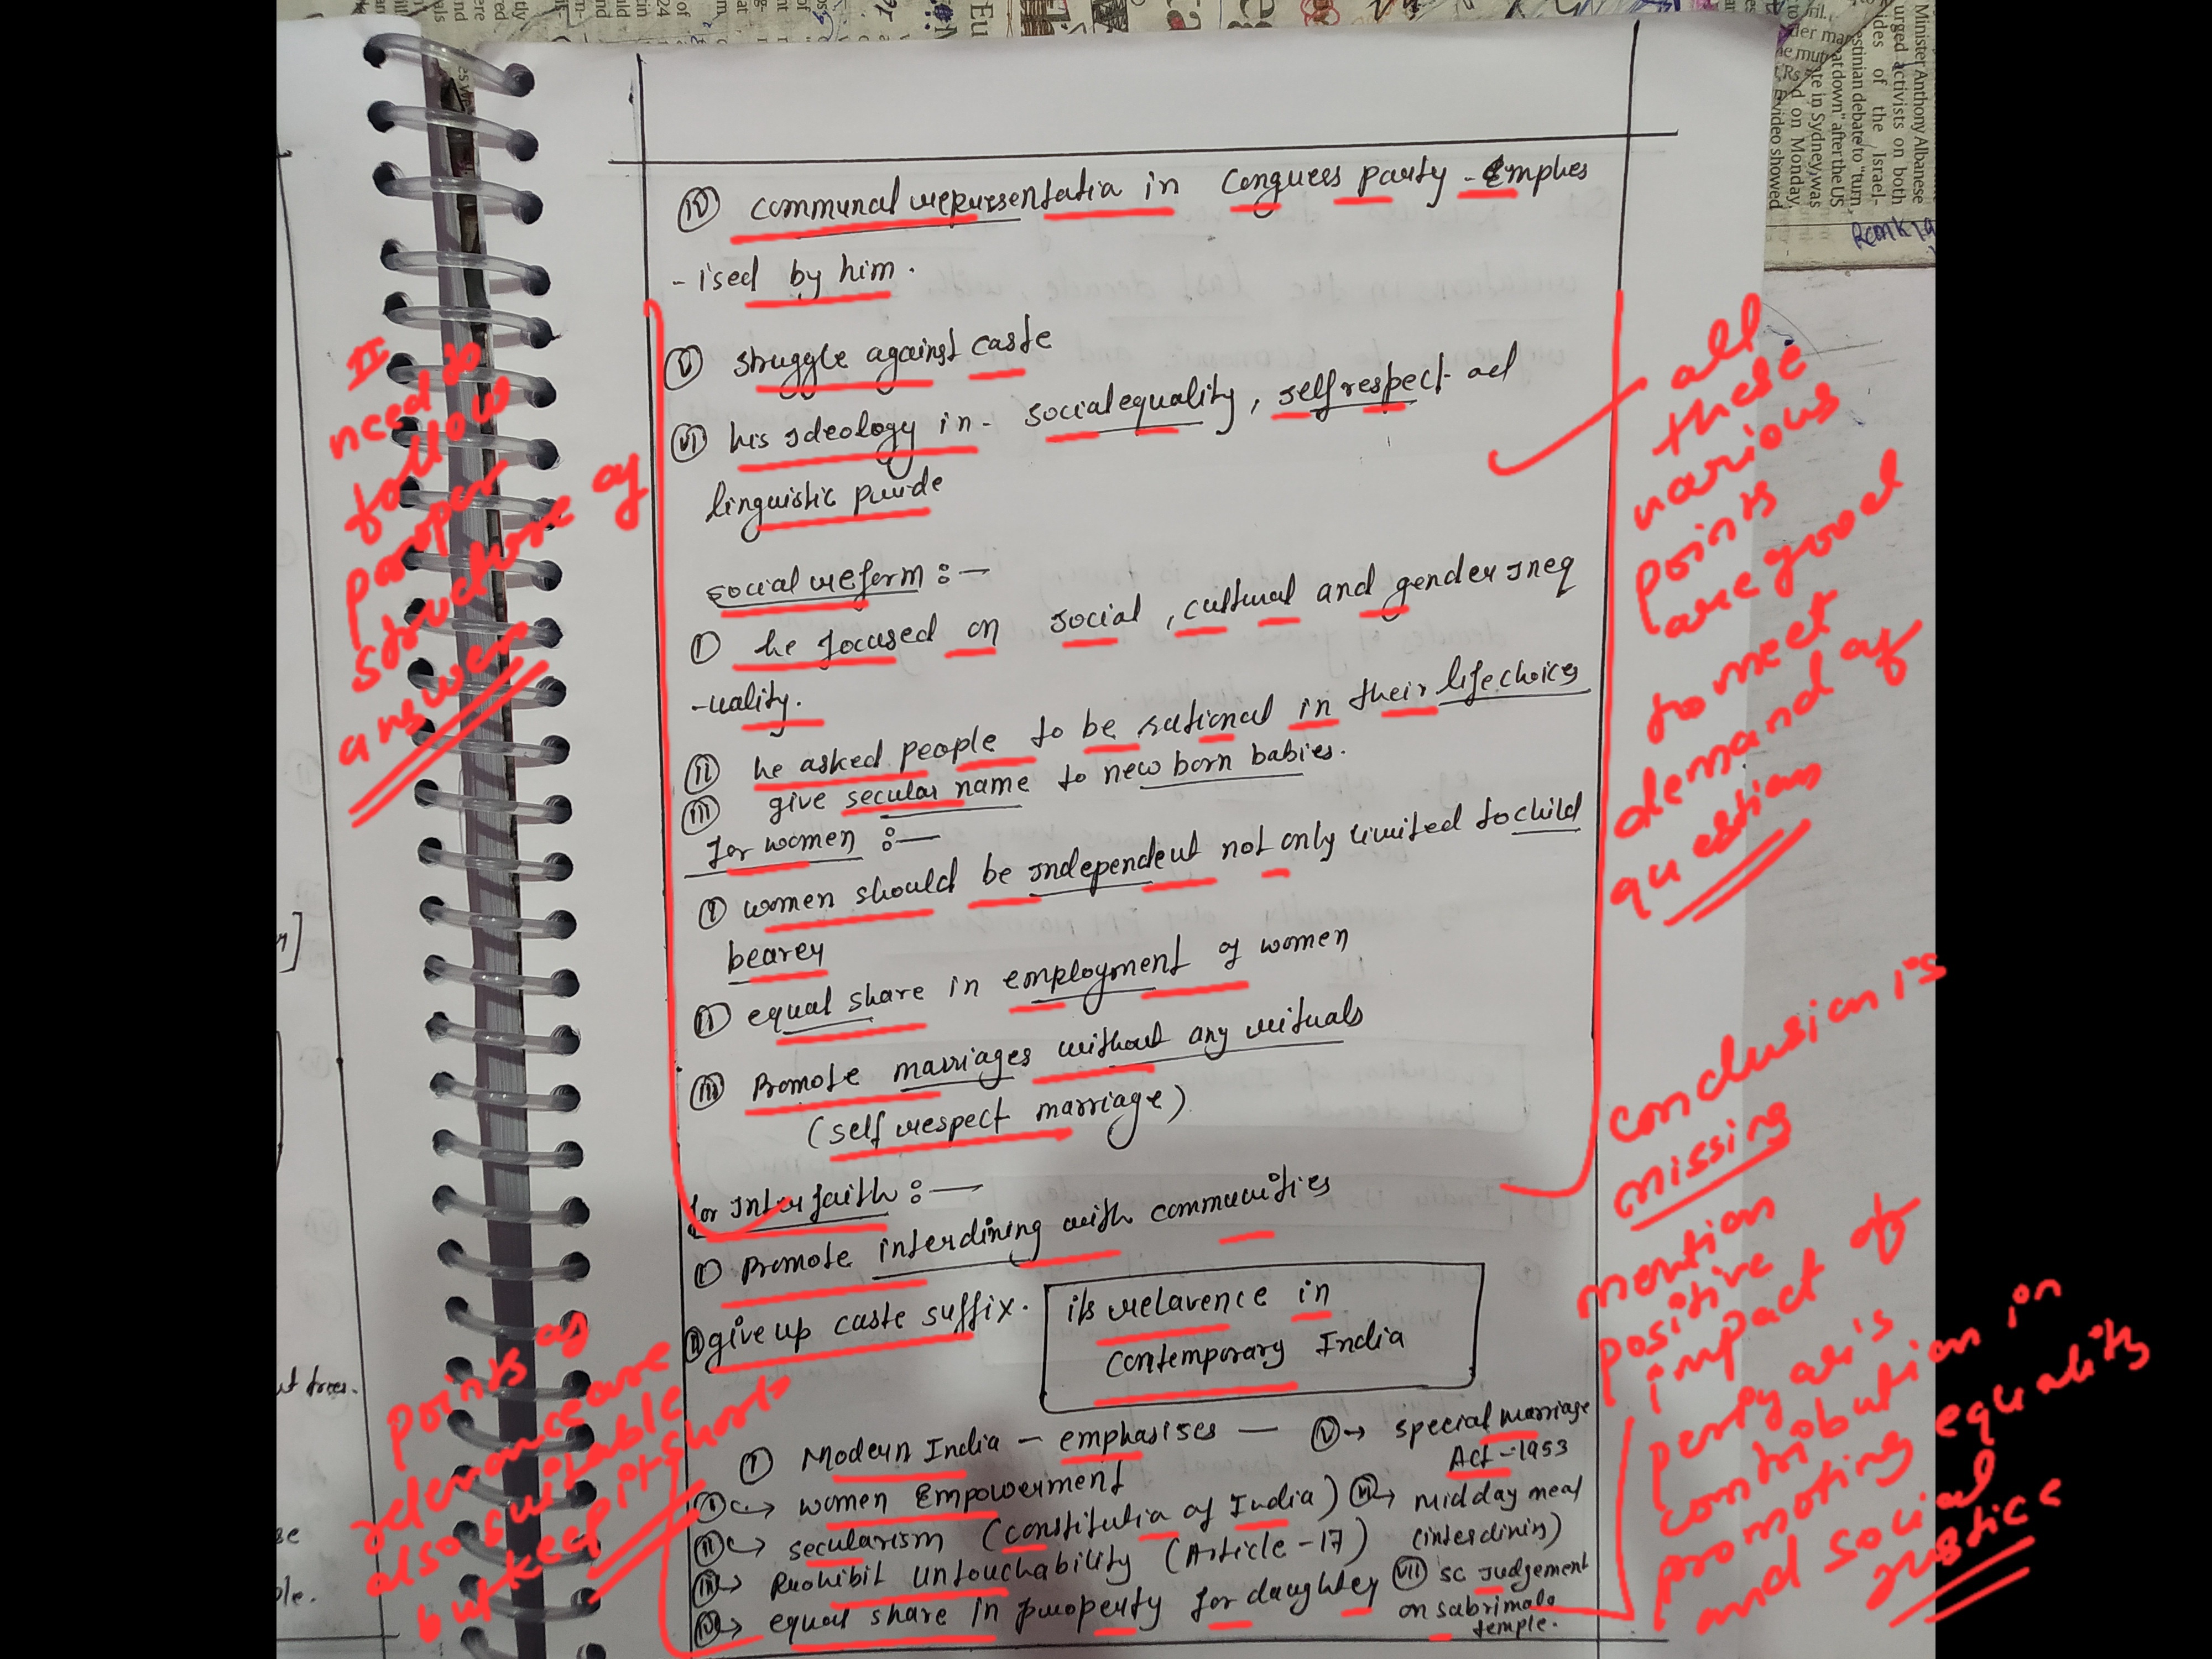 (iv) communal representatia in Congress party - Emphas
- ised by him.
(v) struggle against caste
(vi) his Ideology in - social equality, self respect ad
linguistic pride
social reform :-
(i) he focused on social, cultural and gender Ineq
-uality.
(ii) he asked people to be rational in their life choices
(iii) give secular name to new born babies.
for women :-
(i) women should be Independent not only limited to child
bearer
(ii) equal share in employment of women
(iii) Promote marriages without any rituals
(self respect marriage)
for Interfaith :-
(i) Promote interdining with communities
(ii) give up caste suffix.
its relavence in
contemporary India
(i) Modern India - emphasises -
(i) → women Empowerment
(ii) → secularism (constitutia of India)
(iii) → Prohibit untouchability (Article - 17)
(iv) → equal share in property for daughter
(v) → special marriage
Act - 1953
(vi) → midday meal
(interdinin)
(vii) SC Judgement
on sabrimala
temple.
II
need to
follow
proper
structure of
answer
all
these
various
points
are good
to meet
demand of
question
conclusion is
missing
mention
positive
impact of
periyar's
contribution in
promoting equality
and social
justice
points as
relevance are
also suitable
but keep it short
Minister Anthony Albanese
urged activists on both
sides of the Israel-
estinian debate to "turn
at down" after the US
te in Sydney was
d on Monday.
video showed